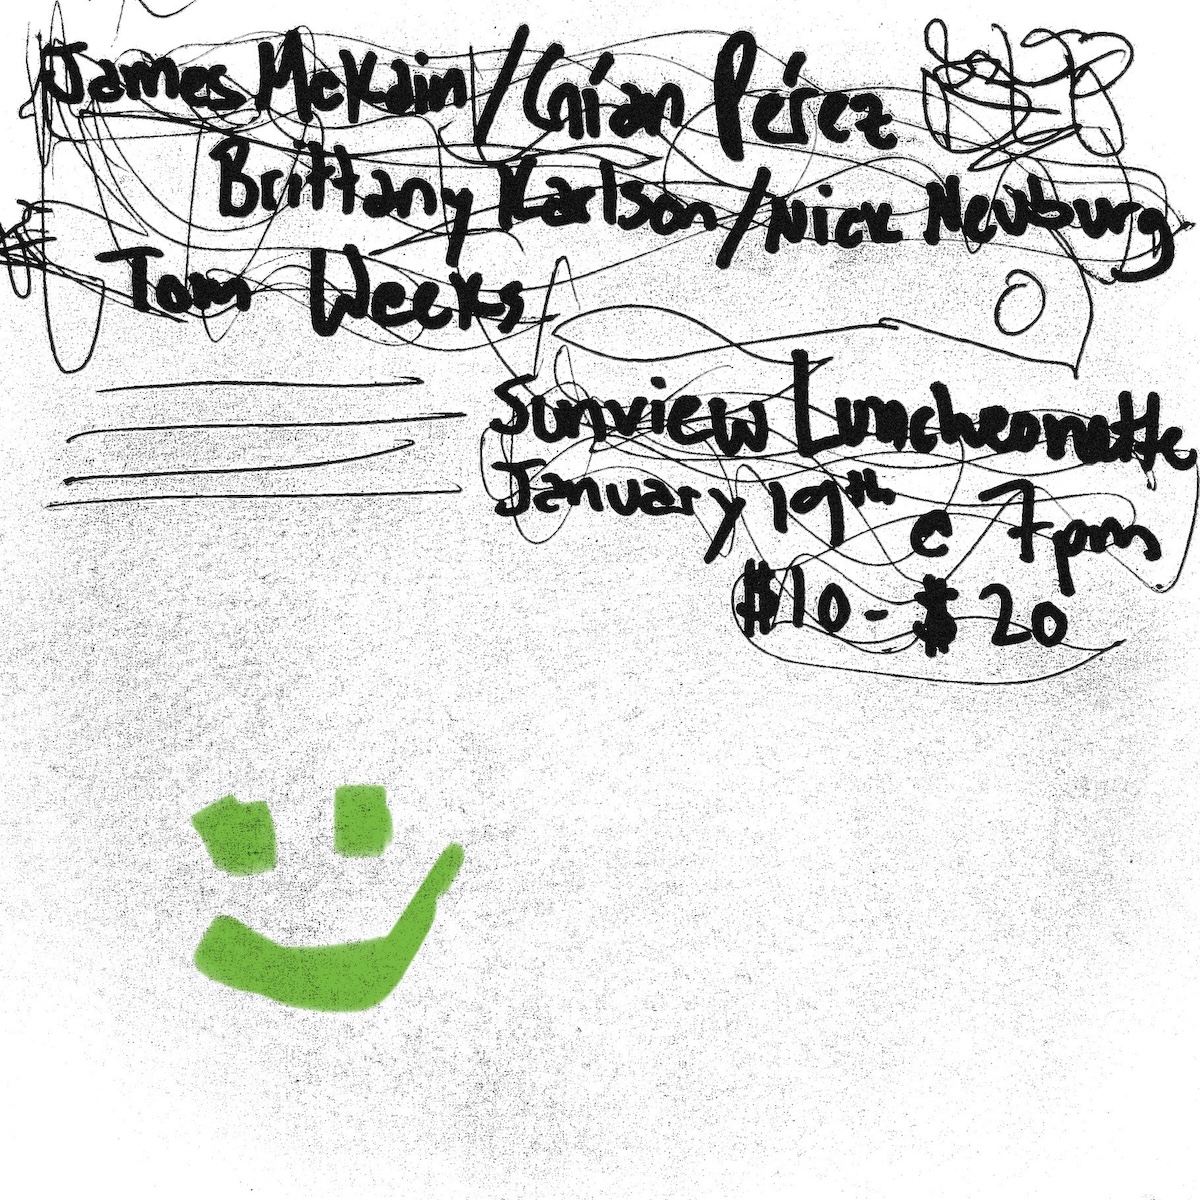 James McKain / Gían Pérez
Brittany Karlson / Nick Neuburg
Tom Weeks
Sunview Luncheonette
January 19th @ 7pm
$10 - $20